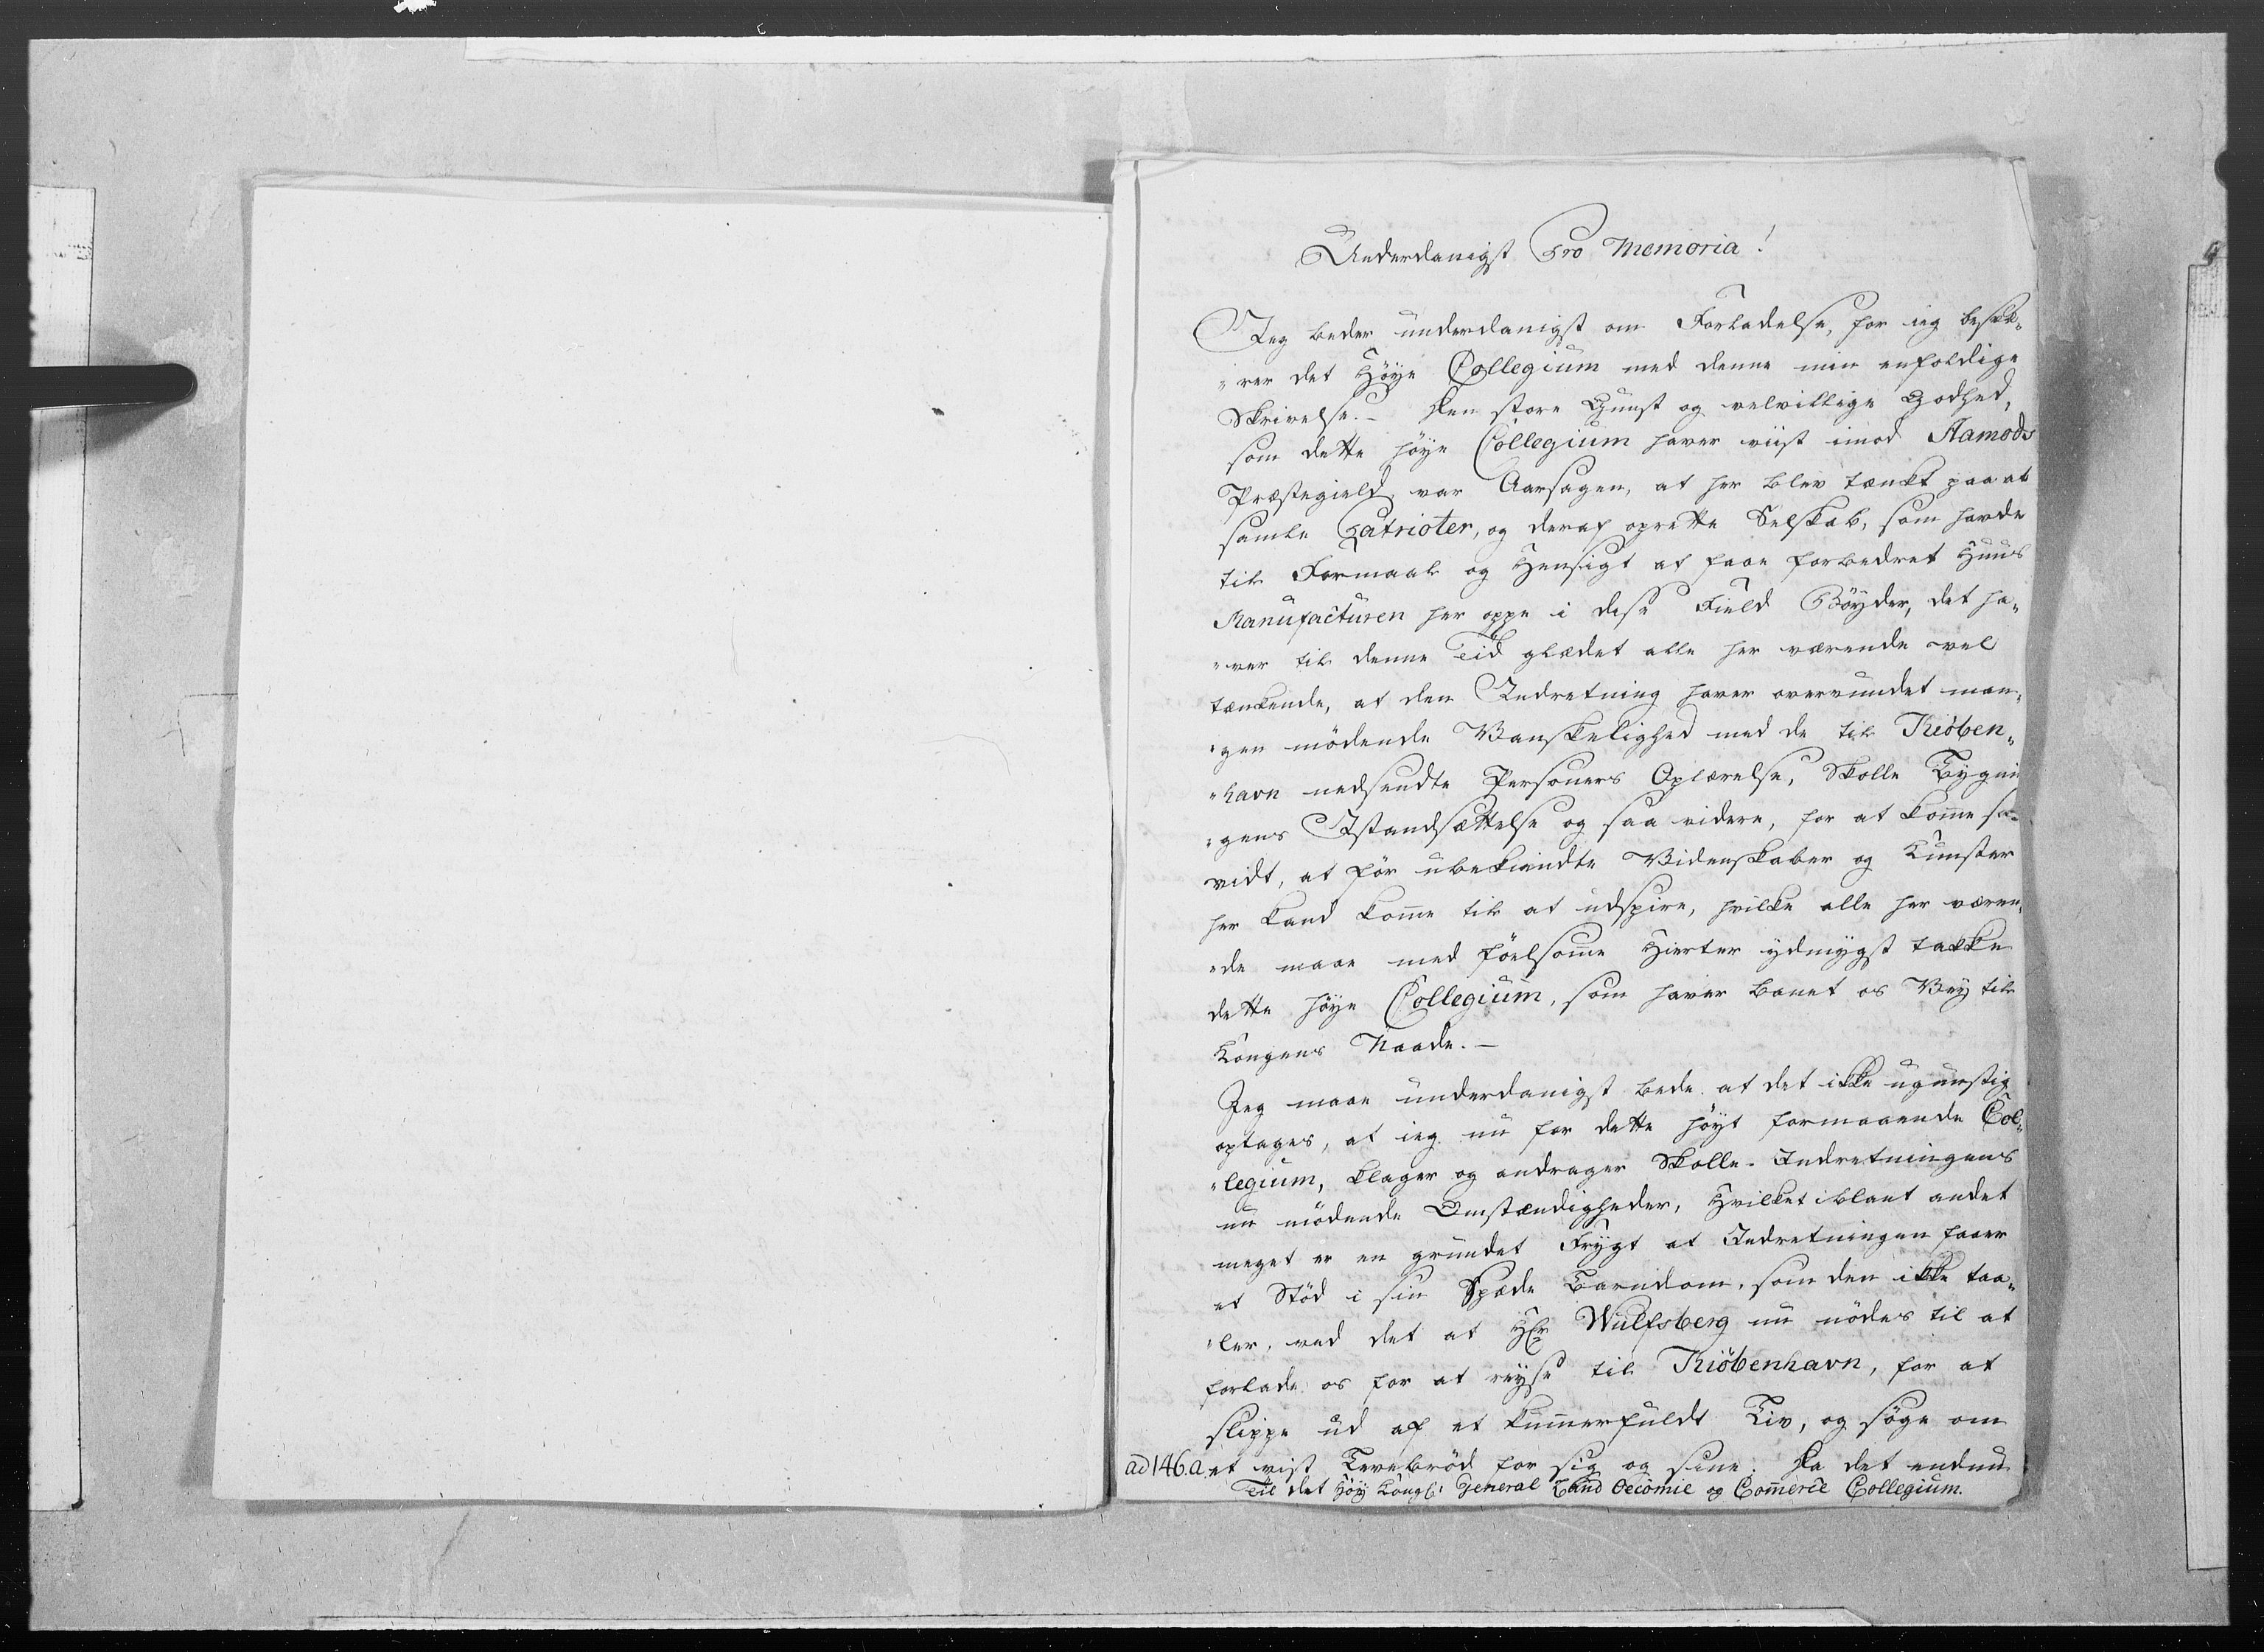 Underdanigst Pro Memoria!
Jeg beder underdanigst om Forladelse, for ieg besvæ„
„rer det Høye Collegium med denne min enfoldige
Skrivelse. – Den store Gunst og velvillige Godhed,
som dette høye Collegium haver viist imod Aamods
Præstegield, var Aarsagen, at her blev tænkt paa at
samle Patrioter, og deraf oprette Selskab, som havde
til Formaal og Hensigt at faae forbedret Huus
Manufacturen her oppe i disse Field Bøyder, det ha„
„ver til denne Tid glædet alle her værende vel
tænkende, at den Indretning haver overvundet man„
„gen mødende Vanskelighed med de til Kiøben„
„havn nedsendte Personers Oplærelse, Skolle Bygnin
„gens Istandsættelse og saa videre, for at komme saa
vidt, at før ubekiendte Videnskaber og Kunster
her kand komme til at udspire, hvilke alle her væren„
„de maae med føelsomme Hierter ydmygst takke
dette høye Collegium, som haver banet os Vey til
Kongens Naade. –
Jeg maae underdanigst bede at det ikke ugunstig
optages, at ieg nu for dette høyt formaaende Col„
„legium, klager og andrager Skolle-Indretningens
nu mødende Omstændigheder, Hvilket iblant andet
meget er en grundet Frygt at Indretningen faaer
et Stød i sin Spæde Barndom, som den ikke taa„
„ler, ved det at Hr Wulfsberg nu nødes til at
forlade os for at reyse til Kiøbenhavn, for at
slippe ud af et kummerfuldt Liv, og søge om
ad 146.a. et vist Levebrød for sig og sine. Da det endnu
Til det Høy Kongl: General Land Oecomie og Commerce Collegium.